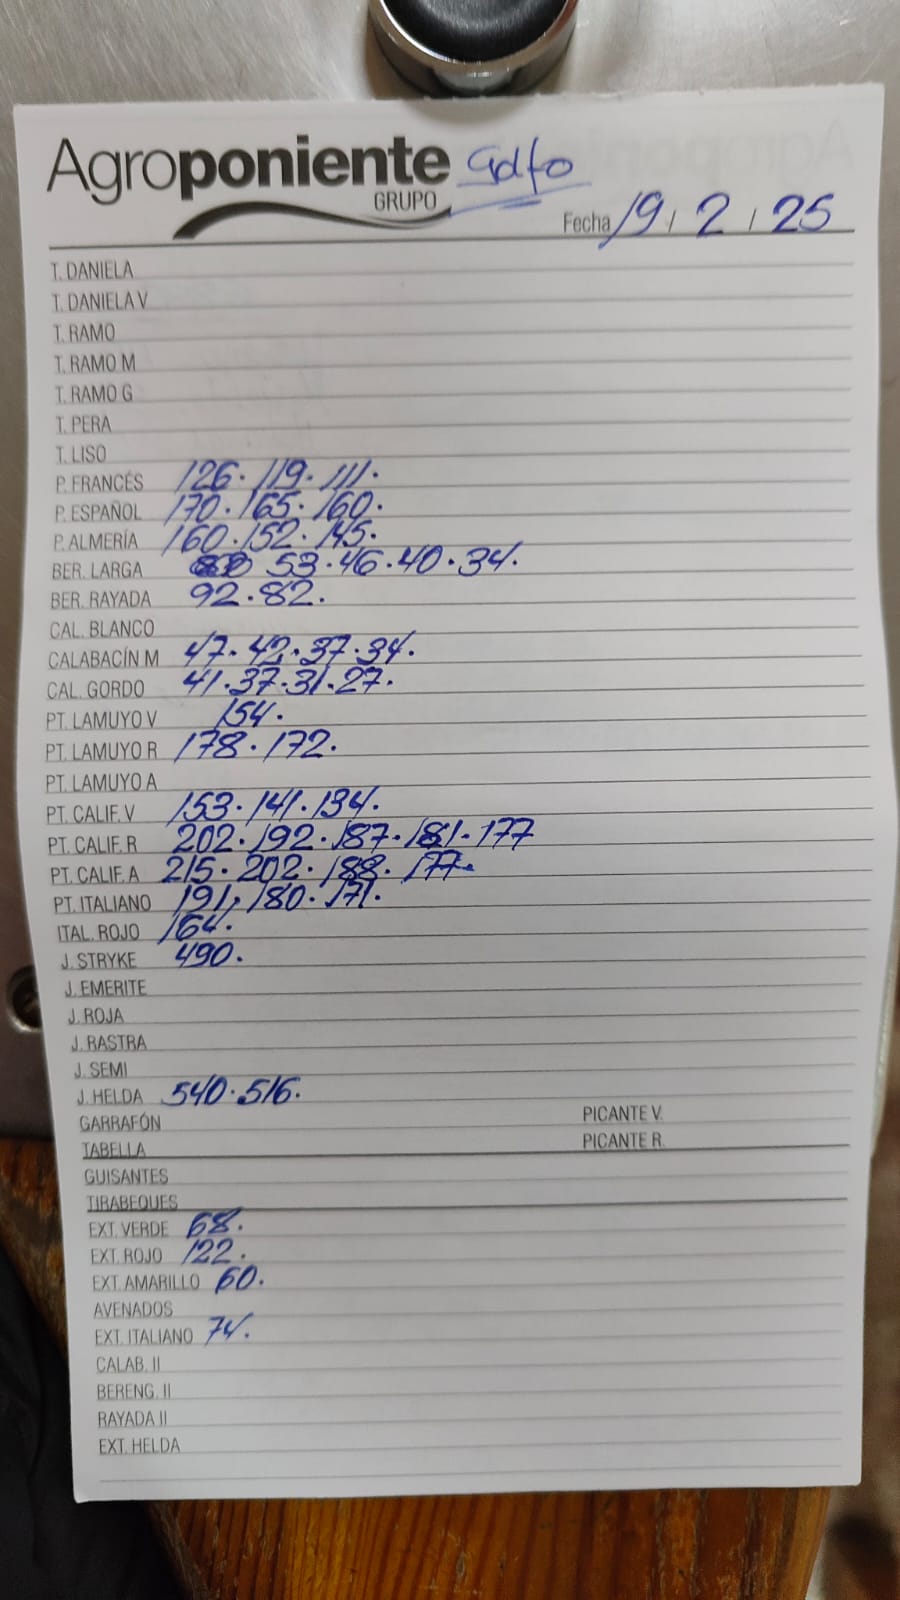 Agroponiente Golfo
GRUPO
Fecha 19 / 2 / 25
T. DANIELA
T. DANIELA V
T. RAMO
T. RAMO M
T. RAMO G
T. PERA
T. LISO
P. FRANCÉS 126. 119. 111.
P. ESPAÑOL 170. 165. 160.
P. ALMERÍA 160. 152. 145.
BER. LARGA 53. 46. 40. 34.
BER. RAYADA 92. 82.
CAL. BLANCO
CALABACÍN M 47. 42. 37. 34.
CAL. GORDO 41. 37. 31. 27.
PT. LAMUYO V 154.
PT. LAMUYO R 178. 172.
PT. LAMUYO A
PT. CALIF. V 153. 141. 134.
PT. CALIF. R 202. 192. 187. 181. 177
PT. CALIF. A 215. 202. 188. 177.
PT. ITALIANO 191, 180. 171.
ITAL. ROJO 164.
J. STRYKE 490.
J. EMERITE
J. ROJA
J. RASTRA
J. SEMI
J. HELDA 540. 516.
GARRAFÓN PICANTE V.
TABELLA PICANTE R.
GUISANTES
TIRABEQUES
EXT. VERDE 68.
EXT. ROJO 122.
EXT. AMARILLO 60.
AVENADOS
EXT. ITALIANO 74.
CALAB. II
BERENG. II
RAYADA II
EXT. HELDA